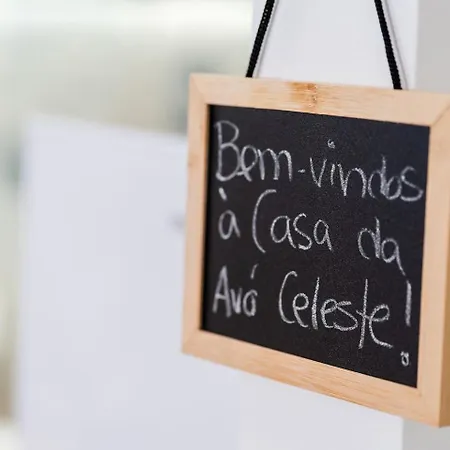 Bem-vindos
à Casa da
Avó Celeste!